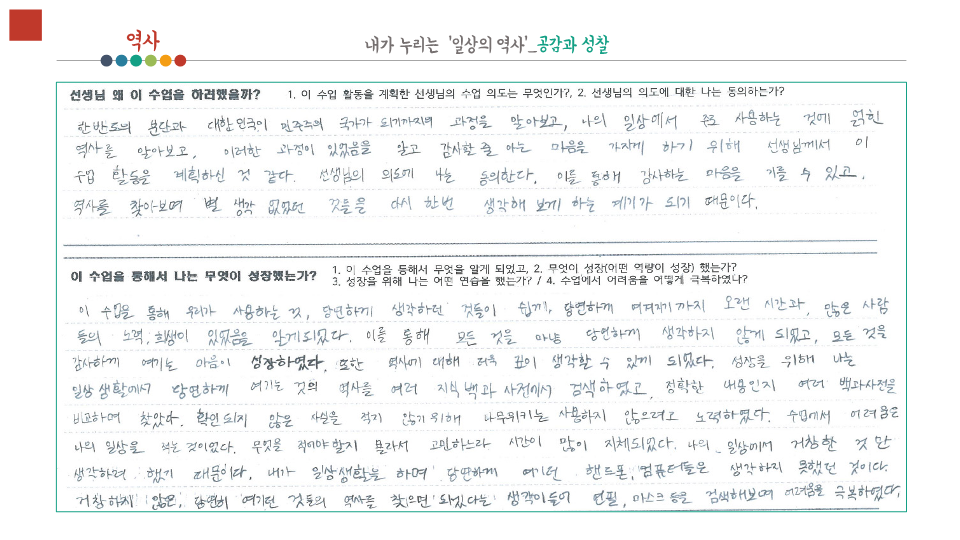 역사
내가 누리는 '일상의 역사'_공감과 성찰
선생님 왜 이 수업을 하려했을까? 1. 이 수업 활동을 계획한 선생님의 수업 의도는 무엇인가?, 2. 선생님의 의도에 대한 나는 동의하는가?
한반도의 분단과 대한민국이 민주주의 국가가 되기까지의 과정을 알아보고, 나의 일상에서 주로 사용하는 것에 얽힌
역사를 알아보고, 이러한 과정이 있었음을 알고 감사할 줄 아는 마음을 가지게 하기 위해 선생님께서 이
수업 활동을 계획하신 것 같다. 선생님의 의도에 나는 동의한다. 이를 통해 감사하는 마음을 기를 수 있고,
역사를 찾아보며 별 생각 없었던 것들을 다시 한번 생각해 보게 하는 계기가 되기 때문이다.
이 수업을 통해서 나는 무엇이 성장했는가? 1. 이 수업을 통해서 무엇을 알게 되었고, 2. 무엇이 성장(어떤 역량이 성장) 했는가?
3. 성장을 위해 나는 어떤 연습을 했는가? / 4. 수업에서 어려움을 어떻게 극복하였나?
이 수업을 통해 우리가 사용하는 것, 당연하게 생각하던 것들이 쉽게, 당연하게 여겨지기까지 오랜 시간과, 많은 사람
들의 노력, 희생이 있었음을 알게되었다. 이를 통해 모든 것을 마냥 당연하게 생각하지 않게 되었고, 모든 것을
감사하게 여기는 마음이 성장하였다. 또한 역사에 대해 더욱 깊이 생각할 수 있게 되었다. 성장을 위해 나는
일상 생활에서 당연하게 여기는 것의 역사를 여러 지식 백과 사전에서 검색하였고, 정확한 내용인지 여러 백과사전을
비교하며 찾았다. 확인되지 않은 사실을 적지 않기 위해 나무위키는 사용하지 않으려고 노력하였다. 수업에서 어려움은
나의 일상을 적는 것이었다. 무엇을 적어야 할지 몰라서 고민하느라 시간이 많이 지체되었다. 나의 일상에서 거창한 것 만
생각하려 했기 때문이다. 내가 일상생활을 하며 당연하게 여기던 핸드폰, 컴퓨터들은 생각하지 못했던 것이다.
거창하지 않은, 당연히 여기던 것들의 역사를 찾으면 되겠다는 생각이들어 연필, 마스크 등을 검색해보며 어려움을 극복하였다.